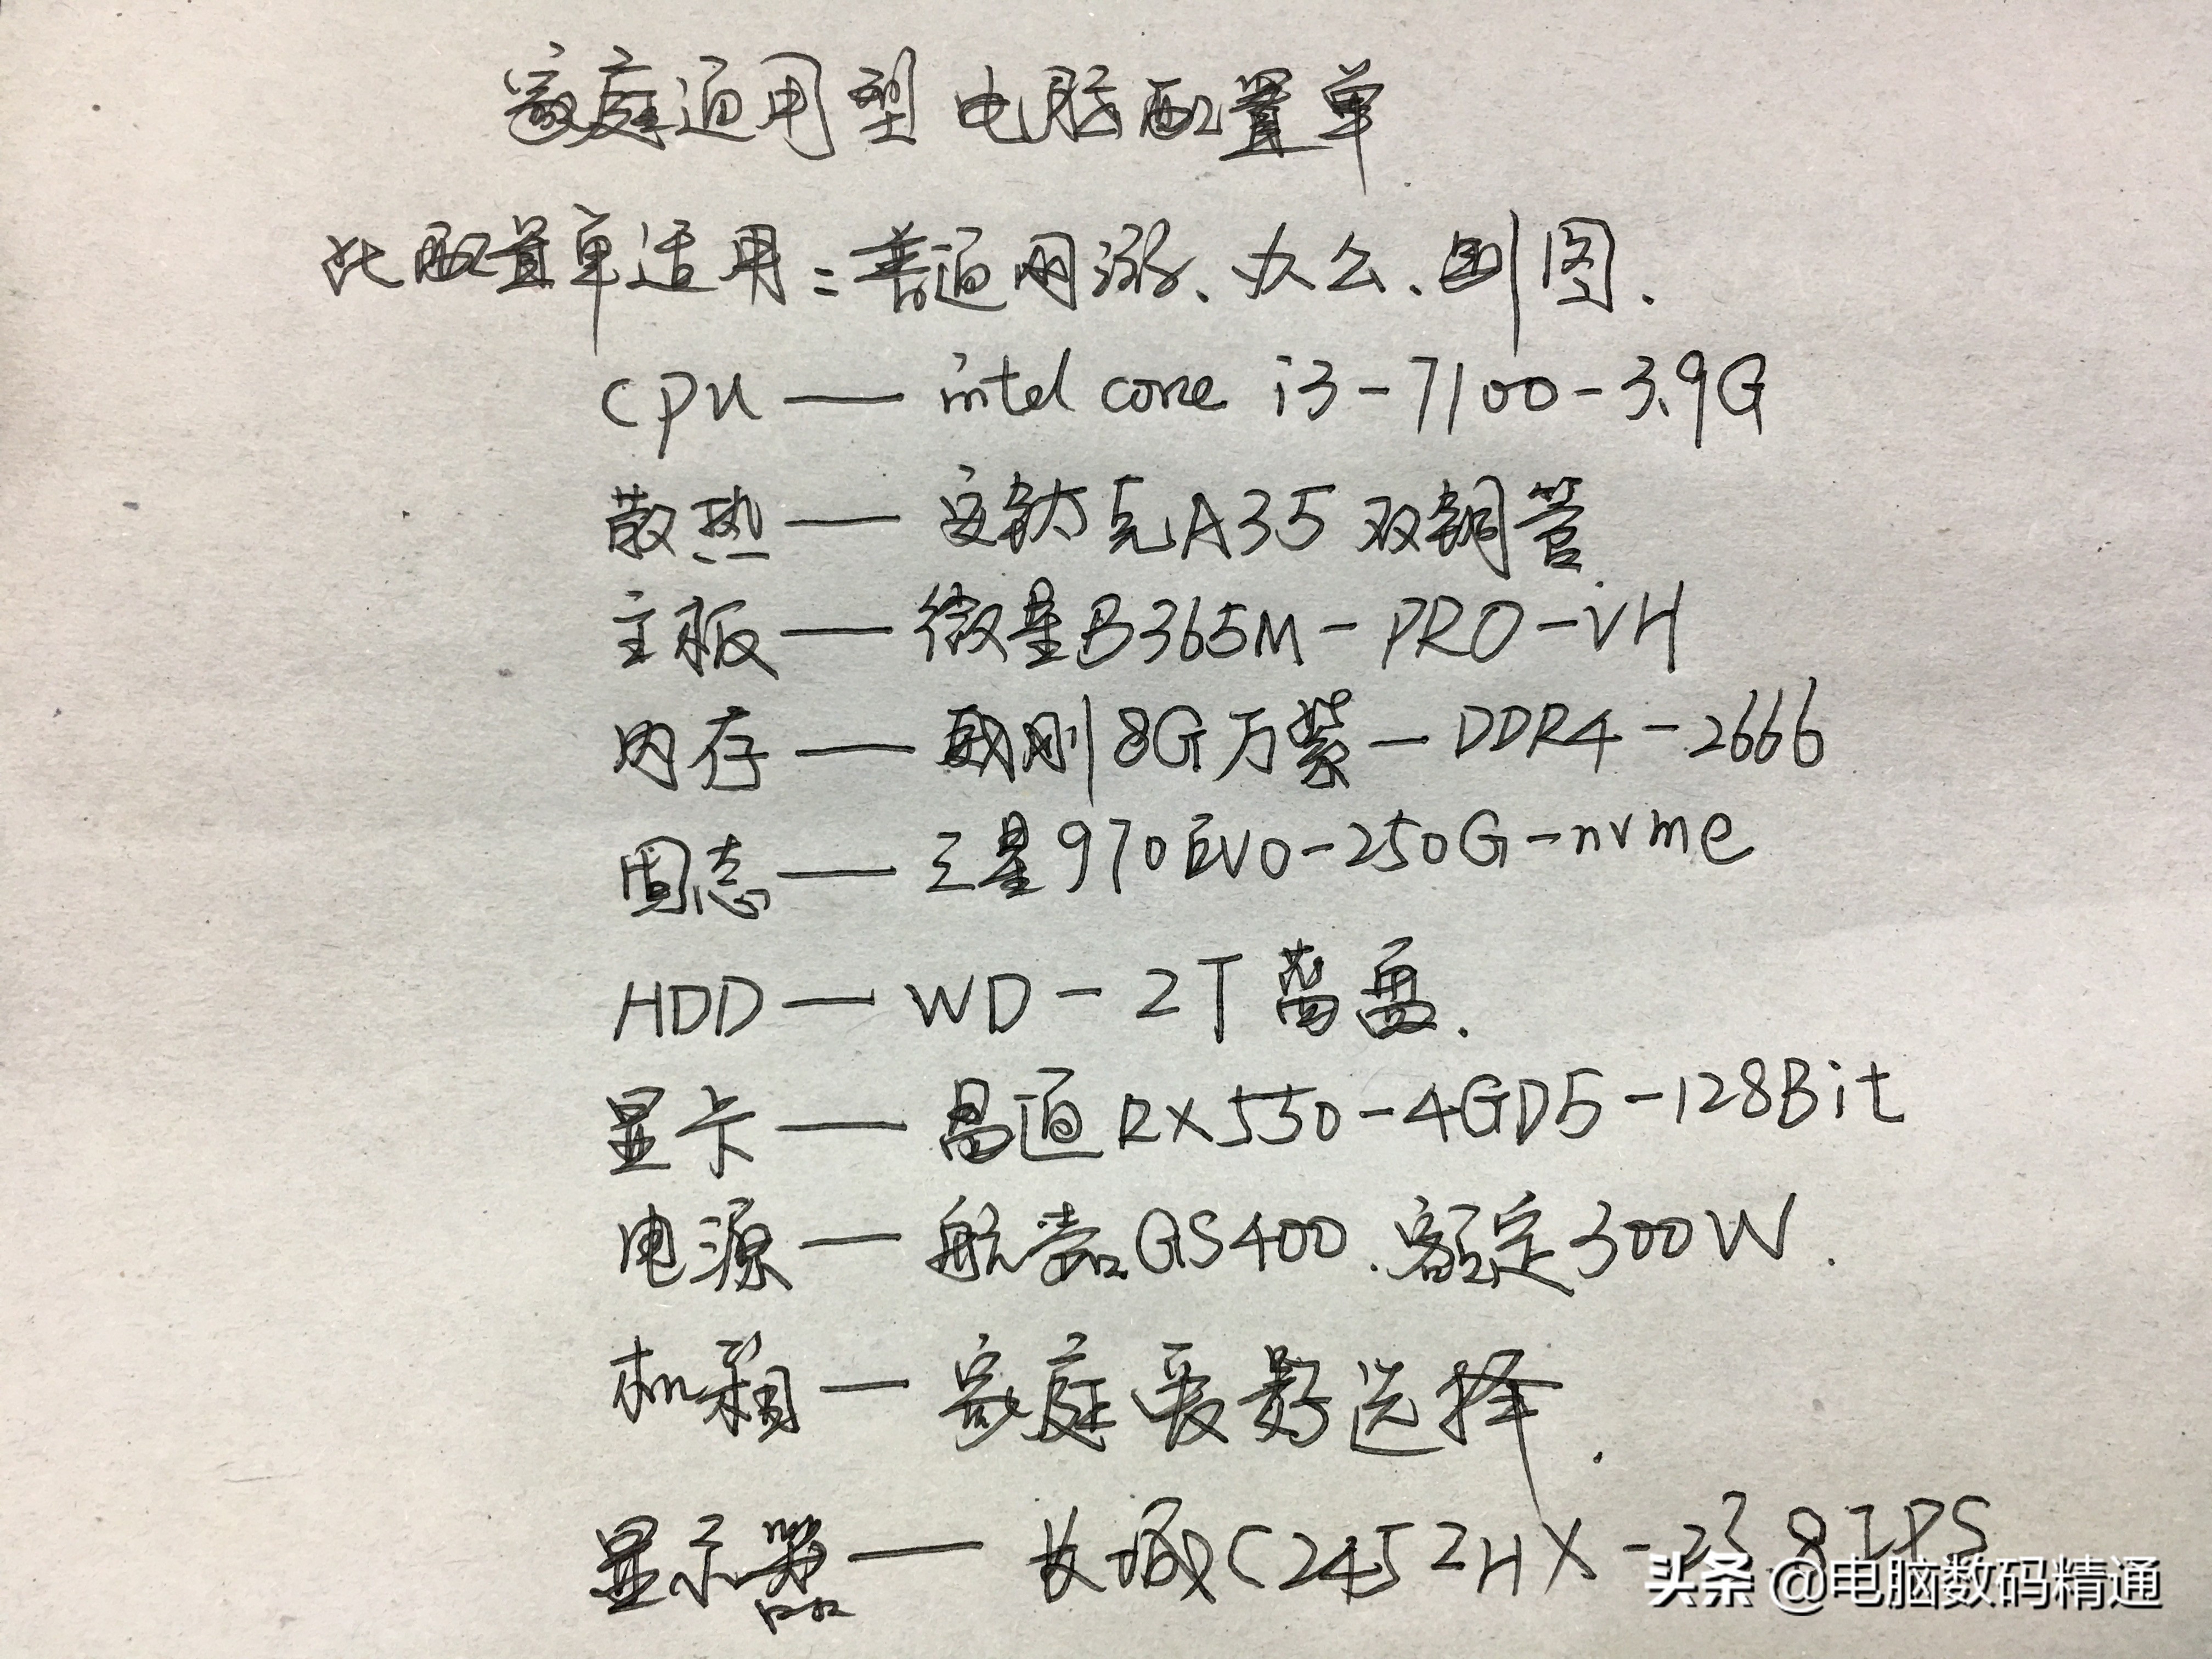 家庭通用型电脑配置单
此配置单适用:普通网游、办公、制图.
CPU — intel core i3-7100-3.9G
散热 — 安钛克A35双铜管
主板 — 微星B365M-PRO-VH
内存 — 威刚8G万紫-DDR4-2666
固态 — 三星970EVO-250G-nvme
HDD — WD-2T蓝盘.
显卡 — 昂达RX550-4GD5-128Bit
电源 — 航嘉GS400.额定300W.
机箱 — 家庭爱好选择.
显示器 — 长城C2452HX-238IPS
头条 @电脑数码精通